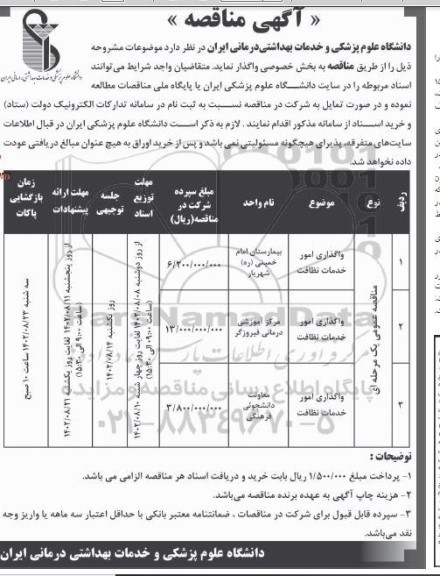 « آگهی مناقصه »
دانشگاه علوم پزشکی و خدمات بهداشتی درمانی ایران
دانشگاه علوم پزشکی و خدمات بهداشتی درمانی ایران در نظر دارد موضوعات مشروحه
ذیل را از طریق مناقصه به بخش خصوصی واگذار نماید. متقاضیان واجد شرایط می توانند
اسناد مربوطه را در سایت دانشگاه علوم پزشکی ایران یا پایگاه ملی مناقصات مطالعه
نموده و در صورت تمایل به شرکت در مناقصه نسبت به ثبت نام در سامانه تدارکات الکترونیک دولت (ستاد)
و خرید اسناد از سامانه مذکور اقدام نمایند . لازم به ذکر است دانشگاه علوم پزشکی ایران در قبال اطلاعات
سایت‌های متفرقه، پذیرای هیچگونه مسئولیتی نمی باشد و پس از خرید اوراق به هیچ عنوان مبالغ دریافتی عودت
داده نخواهد شد.
ردیف نوع موضوع نام واحد مبلغ سپرده شرکت در مناقصه(ریال) مهلت توزیع اسناد جلسه توجیهی مهلت ارائه پیشنهادات زمان بازگشایی پاکات
۱ واگذاری امور خدمات نظافت بیمارستان امام خمینی (ره) شهریار ۶/۲۰۰/۰۰۰/۰۰۰
۲ واگذاری امور خدمات نظافت مرکز آموزشی درمانی فیروزگر ۱۳/۰۰۰/۰۰۰/۰۰۰
۳ واگذاری امور خدمات نظافت معاونت دانشجویی فرهنگی ۳/۸۰۰/۰۰۰/۰۰۰
مناقصه عمومی یک مرحله ای
از روز دوشنبه ۱۴۰۲/۰۸/۰۸ لغایت روز چهارشنبه ۱۴۰۲/۰۸/۱۰ (ساعت ۰۹:۰۰ الی ۱۵:۳۰)
روز یکشنبه ۱۴۰۲/۰۸/۱۴
از روز پنجشنبه ۱۴۰۲/۰۸/۱۱ لغایت روز یکشنبه ۱۴۰۲/۰۸/۲۱ (ساعت ۹:۰۰ الی ۱۵:۳۰)
سه شنبه ۱۴۰۲/۰۸/۲۳ ساعت ۱۰ صبح
ParsNamadData
پایگاه اطلاع رسانی مناقصه و مزایده
۰۲۱-۸۸۳۴۹۶۷۰-۵
توضیحات :
۱- پرداخت مبلغ ۱/۵۰۰/۰۰۰ ریال بابت خرید و دریافت اسناد هر مناقصه الزامی می باشد.
۲- هزینه چاپ آگهی به عهده برنده مناقصه می‌باشد.
۳- سپرده قابل قبول برای شرکت در مناقصات ، ضمانتنامه معتبر بانکی با حداقل اعتبار سه ماهه یا واریز وجه
نقد می‌باشد.
دانشگاه علوم پزشکی و خدمات بهداشتی درمانی ایران